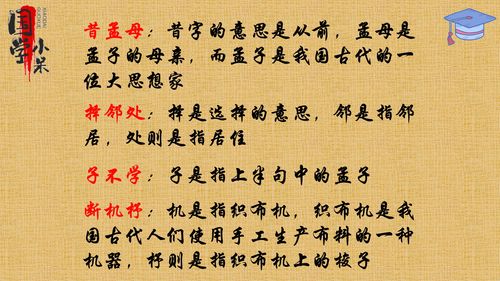 国学小米
XIAODAI
GUOXUE
昔孟母：昔字的意思是从前，孟母是
孟子的母亲，而孟子是我国古代的一
位大思想家
择邻处：择是选择的意思，邻是指邻
居，处则是指居住
子不学：子是指上半句中的孟子
断机杼：机是指织布机，织布机是我
国古代人们使用手工生产布料的一种
机器，杼则是指织布机上的梭子